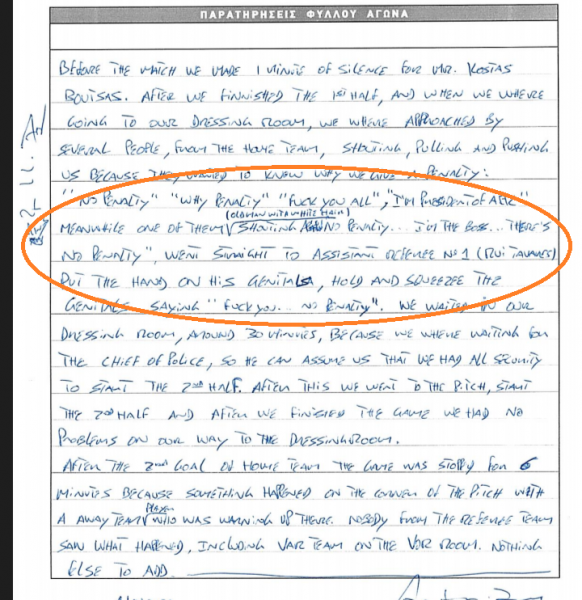 ΠΑΡΑΤΗΡΗΣΕΙΣ ΦΥΛΛΟΥ ΑΓΩΝΑ
BEFORE THE MATCH WE MADE 1 MINUTE OF SILENCE FOR MR. KOSTAS
BOUTSAS. AFTER WE FINNISHED THE 1st HALF, AND WHEN WE WHERE
GOING TO OUR DRESSING ROOM, WE WHERE APPROACHED BY
SEVERAL PEOPLE, FROM THE HOME TEAM, SHOUTING, PULLING AND PUSHING
US BECAUSE THEY WANTED TO KNEW WHY WE GAVE A PENALTY:
"NO PENALTY" "WHY PENALTY" "FUCK YOU ALL", "I'M PRESIDENT OF AEK"
(OLDMAN WITH WHITE HAIR)
MEANWHILE ONE OF THEM SHOUTING NO PENALTY... I'M THE BOSS... THERE'S
NO PENALTY", WENT STRAIGHT TO ASSISTANT REFEREE Nº1 (RUI TAVARES)
PUT THE HAND ON HIS GENITALS, HOLD AND SQUEEZE THE
GENITALS SAYING "FUCK YOU... NO PENALTY". WE WAITED IN OUR
DRESSING ROOM, AROUND 30 MINUTES, BECAUSE WE WHERE WAITING FOR
THE CHIEF OF POLICE, SO HE CAN ASSUME US THAT WE HAD ALL SECURITY
TO START THE 2nd HALF. AFTER THIS WE WENT TO THE PITCH, START
THE 2nd HALF AND AFTER WE FINISHED THE GAME WE HAD NO
PROBLEMS ON OUR WAY TO THE DRESSINGROOM.
AFTER THE 2nd GOAL OF HOME TEAM THE GAME WAS STOPP FOR 6
MINUTES BECAUSE SOMETHING HAPPENED ON THE CORNER OF THE PITCH WITH
PLAYER
A AWAY TEAM WHO WAS WARMING UP THERE. NOBODY FROM THE REFEREE TEAM
SAW WHAT HAPPENED, INCLUDING VAR TEAM ON THE VOR ROOM. NOTHING
ELSE TO ADD.